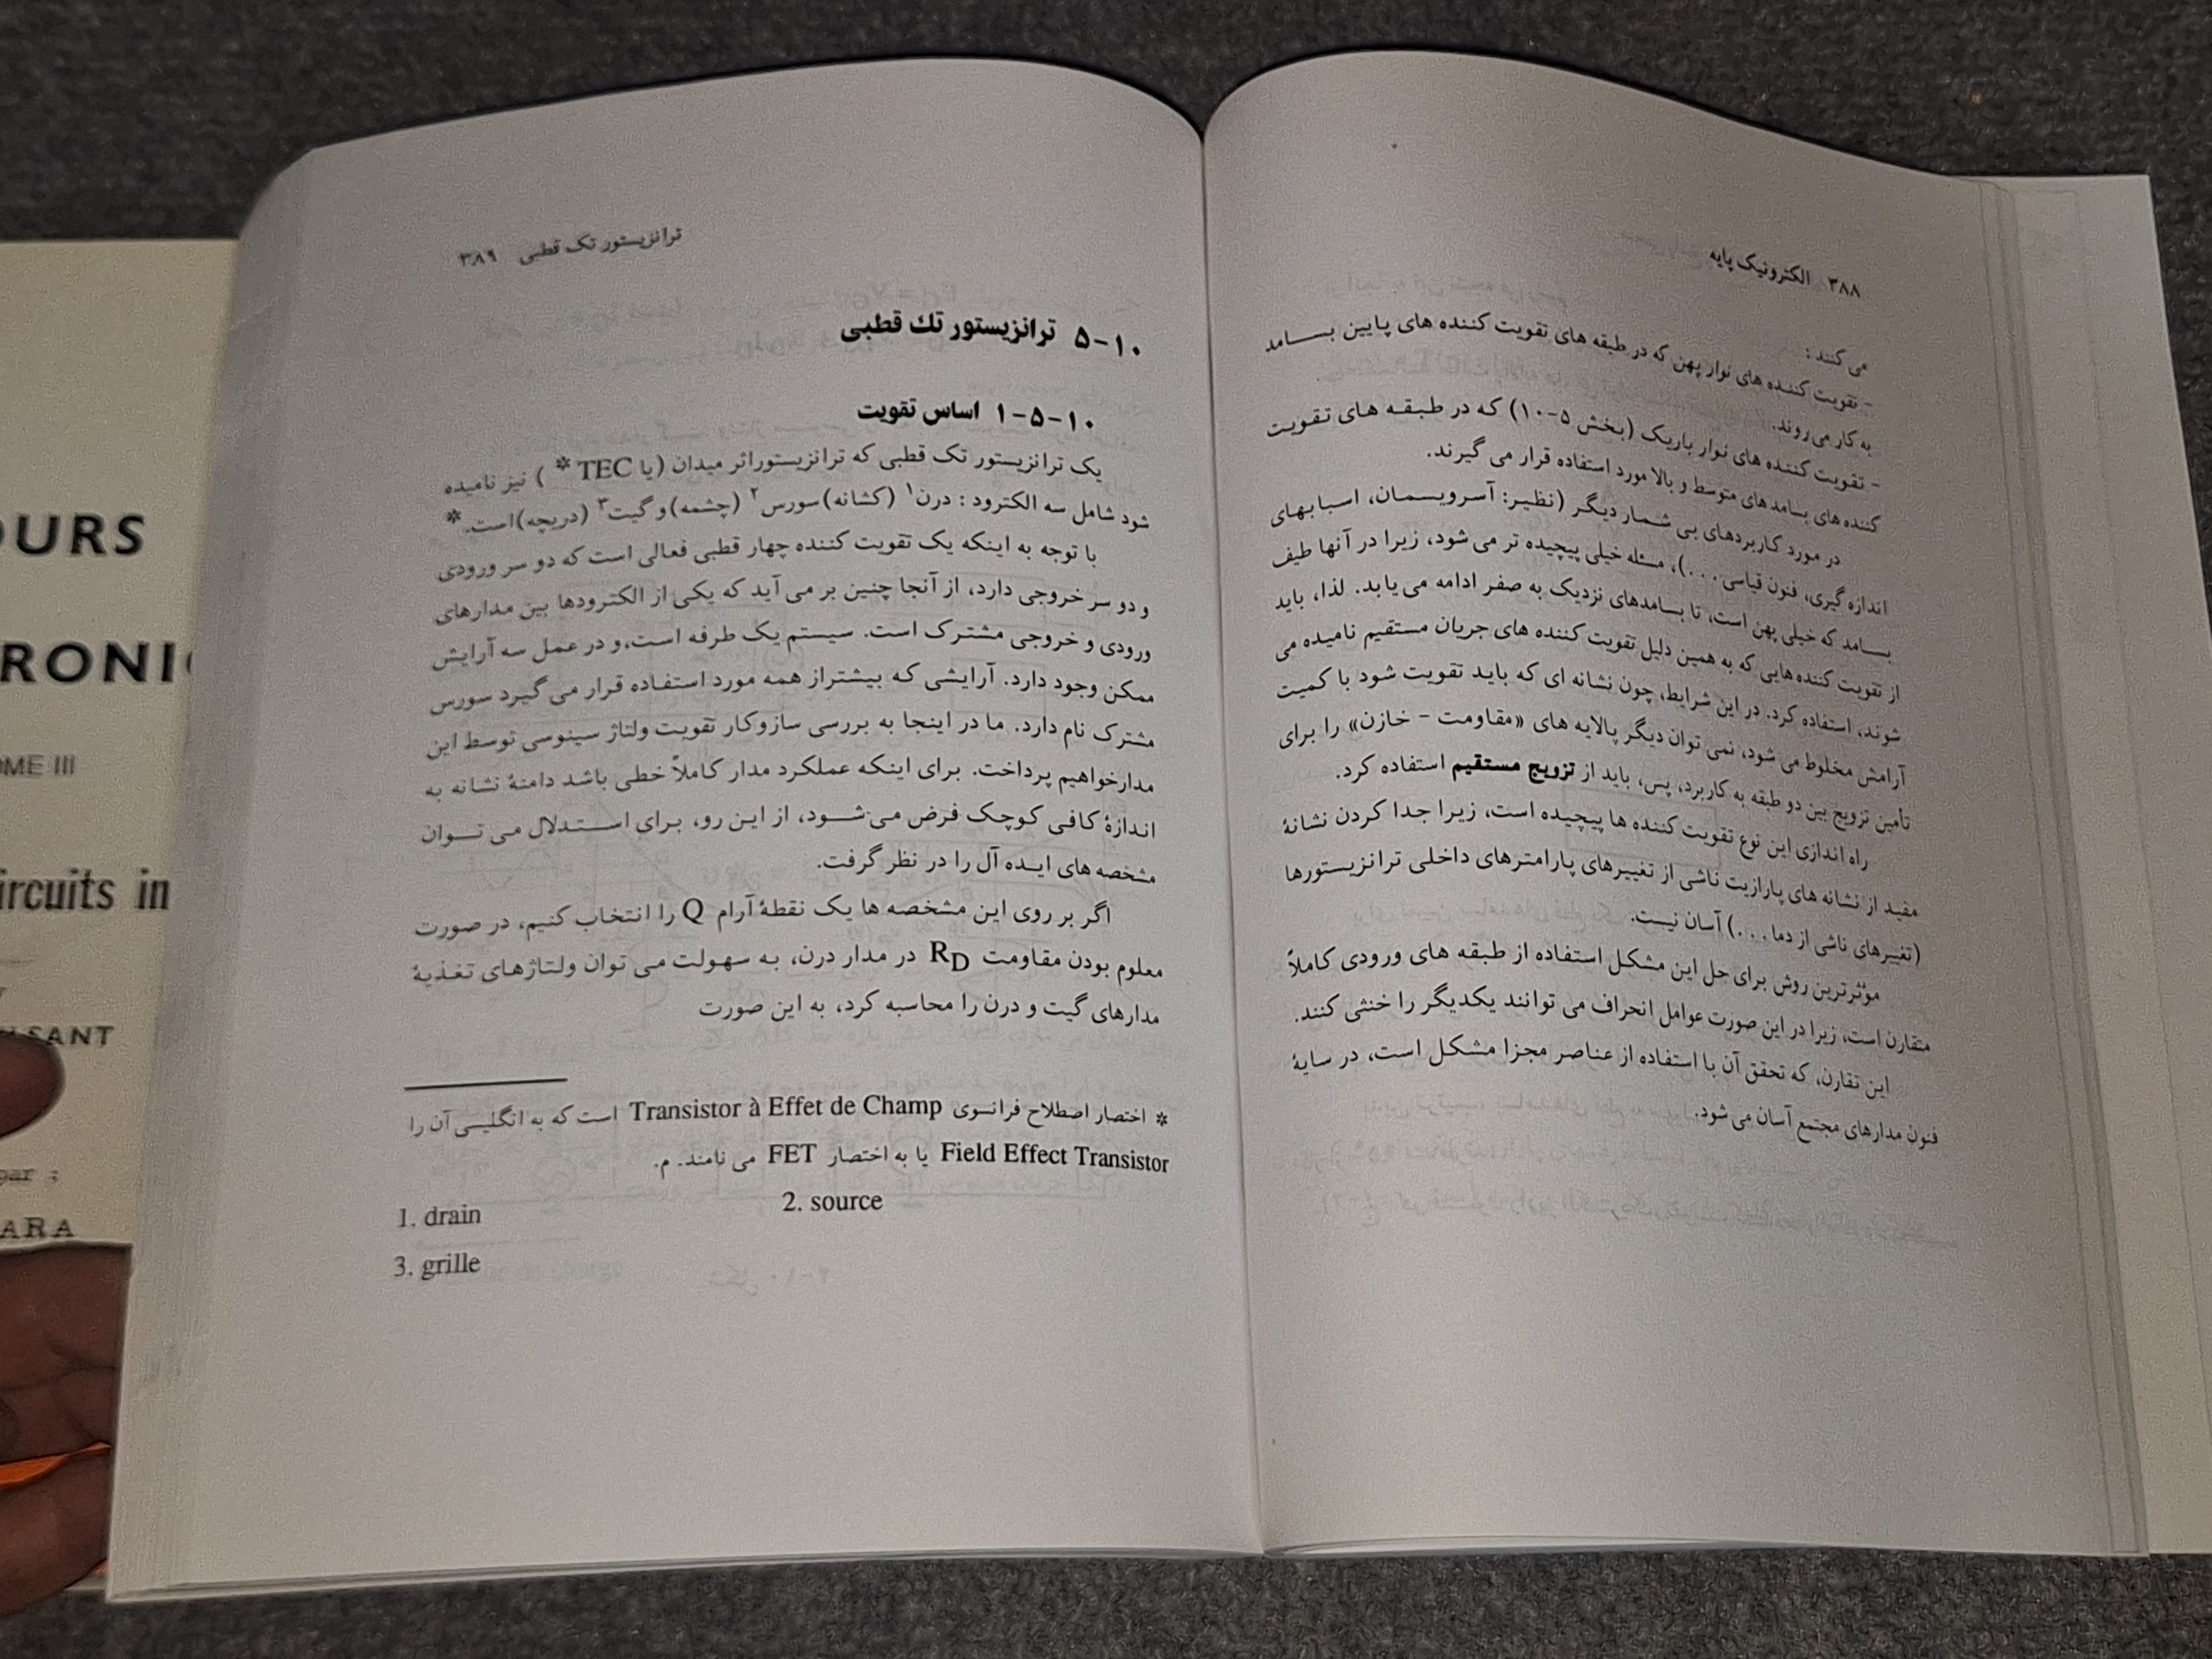 ۳۸۸ الکترونیک پایه
می کنند :
- تقویت کننده های نوار پهن که در طبقه های تقویت کننده های پایین بسـامد
به کار می روند.
- تقویت کننده های نوار باریک (بخش ۵-۱۰) که در طبقه های تقویت
کننده های بسامدهای متوسط و بالا مورد استفاده قرار می گیرند.
در مورد کاربردهای بی شمار دیگر (نظیر: آسرویسمان، اسبابهای
اندازه گیری، فنون قیاسی . . .)، مسئله خیلی پیچیده تر می شود، زیرا در آنها طیف
بسـامد که خیلی پهن است، تا بسامدهای نزدیک به صفر ادامه می یابد. لذا، باید
از تقویت کننده هایی که به همین دلیل تقویت کننده های جریان مستقیم نامیده می
شوند، استفاده کرد. در این شرایط، چون نشانه ای که باید تقویت شود با کمیت
آرامش مخلوط می شود، نمی توان دیگر پالایه های «مقاومت - خازن» را برای
تأمین تزویج بین دو طبقه به کاربرد، پس، باید از تزویج مستقیم استفاده کرد.
راه اندازی این نوع تقویت کننده ها پیچیده است، زیرا جدا کردن نشانۀ
مفید از نشانه های پارازیت ناشی از تغییرهای پارامترهای داخلی ترانزیستورها
(تغییرهای ناشی از دما . . .) آسان نیست.
مؤثرترین روش برای حل این مشکل استفاده از طبقه های ورودی کاملاً
متقارن است، زیرا در این صورت عوامل انحراف می توانند یکدیگر را خنثی کنند.
این تقارن، که تحقق آن با استفاده از عناصر مجزا مشکل است، در سایۀ
فنون مدارهای مجتمع آسان می شود.
ترانزیستور تک قطبی ۳۸۹
۵-۱۰ ترانزیستور تك قطبی
۱-۵-۱۰ اساس تقویت
یک ترانزیستور تک قطبی که ترانزیستوراثر میدان (یا TEC * ) نیز نامیده
شود شامل سه الکترود : درن۱ (کشانه)سورس۲ (چشمه)و گیت۳ (دریچه)است.*
با توجه به اینکه یک تقویت کننده چهار قطبی فعالی است که دو سر ورودی
و دو سر خروجی دارد، از آنجا چنین بر می آید که یکی از الکترودها بین مدارهای
ورودی و خروجی مشترک است. سیستم یک طرفه است،و در عمل سه آرایش
ممکن وجود دارد. آرایشی که بیشتراز همه مورد استفاده قرار می گیرد سورس
مشترک نام دارد. ما در اینجا به بررسی سازوکار تقویت ولتاژ سینوسی توسط این
مدارخواهیم پرداخت. برای اینکه عملکرد مدار کاملاً خطی باشد دامنۀ نشانه به
اندازۀ کافی کوچک فرض می‌شـود، از این رو، برای اسـتـدلال می تـوان
مشخصه های ایـده آل را در نظر گرفت.
اگر بر روی این مشخصه ها یک نقطۀ آرام Q را انتخاب کنیم، در صورت
معلوم بودن مقاومت RD در مدار درن، به سهولت می توان ولتاژهای تغذیۀ
مدارهای گیت و درن را محاسبه کرد، به این صورت
* اختصار اصطلاح فرانسوی Transistor à Effet de Champ است که به انگلیسی آن را
Field Effect Transistor یا به اختصار FET می نامند. م.
1. drain 2. source
3. grille
OURS
RONI
OME III
ircuits in
SANT
par :
ARA